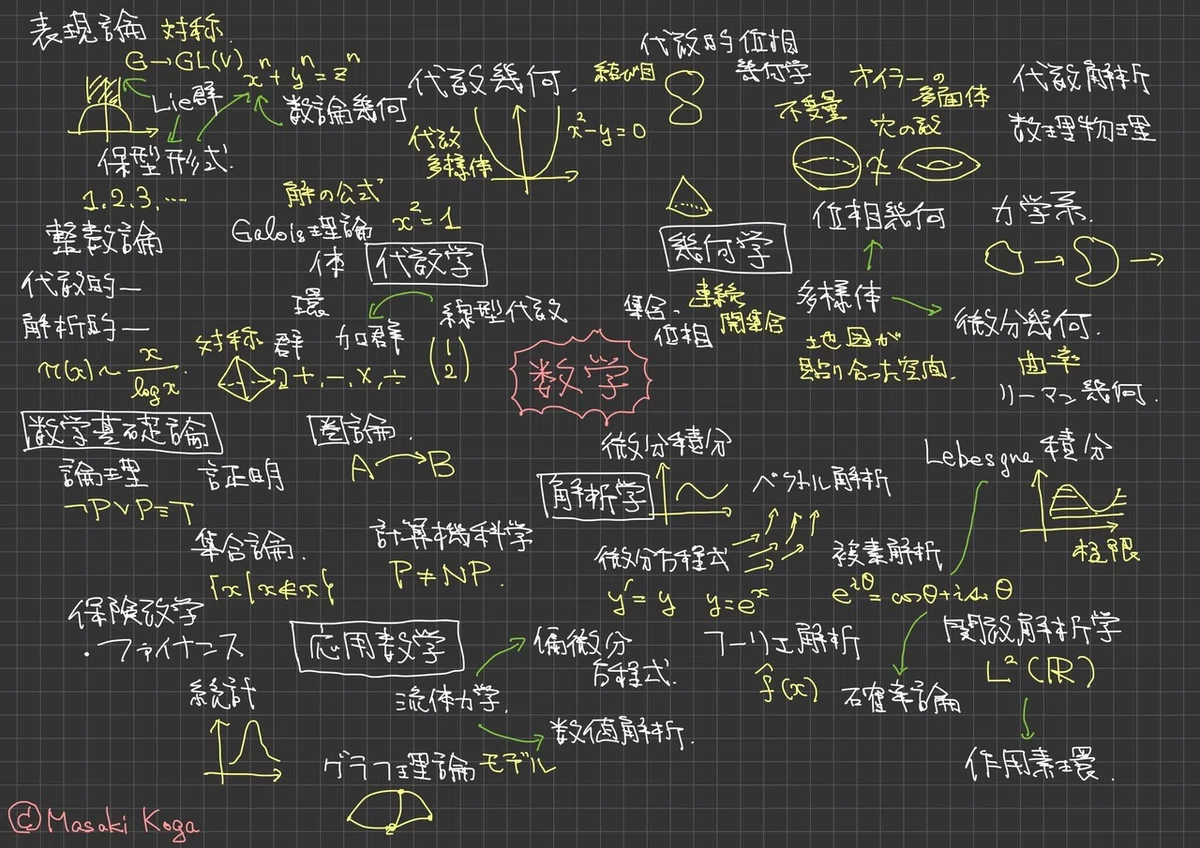 表現論 対称
G→GL(V)
xⁿ+yⁿ=zⁿ
Lie群
数論幾何
保型形式
1,2,3,…
整数論
代数的一
解析的一
π(x)~x/log x
代数幾何
代数
多様体
x²-y=0
解の公式
Galois理論
x²=1
体
代数学
環
群
加群
線型代数
対称
2+,-,×,÷
(1
2)
代数的位相
幾何学
結び目
オイラーの
多面体
不変量
穴の数
≄
代数解析
数理物理
幾何学
位相幾何
力学系
集合・
位相
連続
開集合
多様体
地図が
貼り合った空間
微分幾何
曲率
リーマン幾何
数学
数学基礎論
論理
証明
¬P∨P≡T
集合論
{x|x∉x}
圏論
A→B
計算機科学
P≠NP
解析学
微分積分
ベクトル解析
Lebesgue積分
極限
微分方程式
y'=y y=eˣ
複素解析
e^{iθ}=cosθ+i sinθ
保険数学
・ファイナンス
統計
応用数学
流体力学
偏微分
方程式
数値解析
グラフ理論 モデル
フーリエ解析
f̂(x)
確率論
関数解析学
L²(ℝ)
作用素環
©Masaki Koga